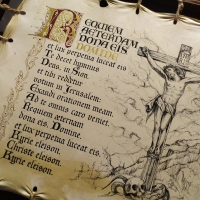 REQUIEM
AETERNAM
DONA EIS
DOMINE
et lux perpetua luceat eis
Te decet hymnus
Deus, in Sion,
et tibi reddetur
votum in Jerusalem:
Exaudi orationem meam,
Ad te omnis caro veniet.
Requiem aeternam
dona eis, Domine,
et lux perpetua luceat eis.
Kyrie eleison,
Christe eleison,
Kyrie eleison.